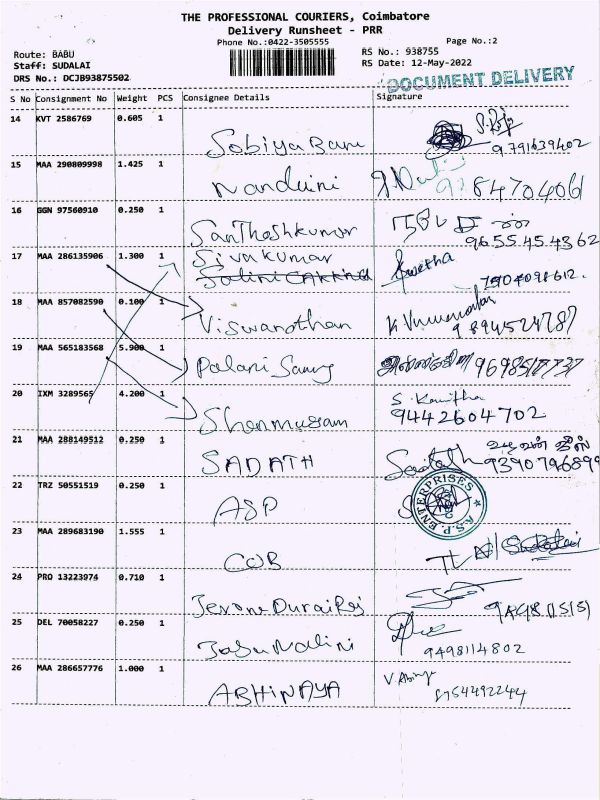 THE PROFESSIONAL COURIERS, Coimbatore
Delivery Runsheet - PRR
Phone No.:0422-3505555
Page No.:2
Route: BABU
Staff: SUDALAI
DRS No.: DCJB93875502
RS No.: 938755
RS Date: 12-May-2022
DOCUMENT DELIVERY
S No Consignment No Weight PCS Consignee Details Signature
14 KVT 2586769 0.605 1
Sobiya Rani
9791639402
15 MAA 290809998 1.425 1
Nandhini
9784704061
16 GGN 97560910 0.250 1
Santhoshkumar
9655454362
17 MAA 286135906 1.300 1
Sivakumar
Swetha
7904098612.
18 MAA 857082590 0.100 1
Viswanathan
9894524787
19 MAA 565183568 5.900 1
Palani Samy
20 IXM 3289565 4.200 1
Shenmugam
S. Kavitha
9442604702
21 MAA 288149512 0.250 1
SADATH
Sadath
9390796899
22 TRZ 50551519 0.250 1
ASP
A.S.P. ENTERPRISES
23 MAA 289683190 1.555 1
CUB
24 PRO 13223974 0.710 1
Jerone Durai Raj
25 DEL 70058227 0.250 1
Jasu Malini
9498114802
26 MAA 286657776 1.000 1
ABHINAYA
V. Abinaya
8754492244